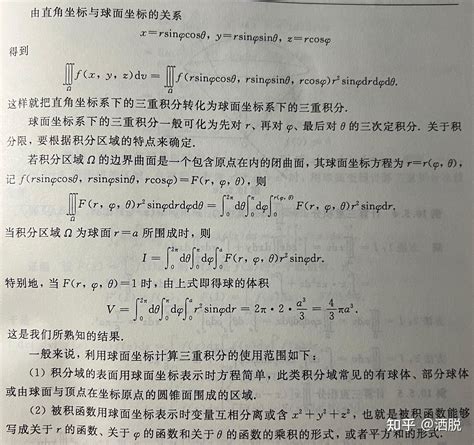 由直角坐标与球面坐标的关系
x=rsinφcosθ, y=rsinφsinθ, z=rcosφ
得到
∭_Ω f(x, y, z)dv = ∭_Ω f(rsinφcosθ, rsinφsinθ, rcosφ)r²sinφdrdφdθ.
这样就把直角坐标系下的三重积分转化为球面坐标系下的三重积分.
球面坐标系下的三重积分一般可化为先对 r、再对 φ、最后对 θ 的三次定积分. 关于积
分限, 要根据积分区域的特点来确定.
若积分区域 Ω 的边界曲面是一个包含原点在内的闭曲面, 其球面坐标方程为 r=r(φ, θ),
记 f(rsinφcosθ, rsinφsinθ, rcosφ)=F(r, φ, θ), 则
∭_Ω F(r, φ, θ)r²sinφdrdφdθ = ∫₀^{2π}dθ∫₀^{π}dφ∫₀^{r(φ, θ)}F(r, φ, θ)r²sinφdr.
当积分区域 Ω 为球面 r=a 所围成时, 则
I = ∫₀^{2π}dθ∫₀^{π}dφ∫₀^{a}F(r, φ, θ)r²sinφdr.
特别地, 当 F(r, φ, θ)=1 时, 由上式即得球的体积
V = ∫₀^{2π}dθ∫₀^{π}dφ∫₀^{a}r²sinφdr = 2π · 2 · a³/3 = 4/3 πa³.
这是我们所熟知的结果.
一般来说, 利用球面坐标计算三重积分的使用范围如下:
(1) 积分域的表面用球面坐标表示时方程简单, 此类积分域常见的有球体、部分球体
或由球面与顶点在坐标原点的圆锥面围成的区域.
(2) 被积函数用球面坐标表示时变量互相分离或含 x²+y²+z², 也就是被积函数能够
写成关于 r 的函数、关于 φ 的函数和关于 θ 的函数的乘积的形式, 或者平方和的形式.
知乎 @洒脱